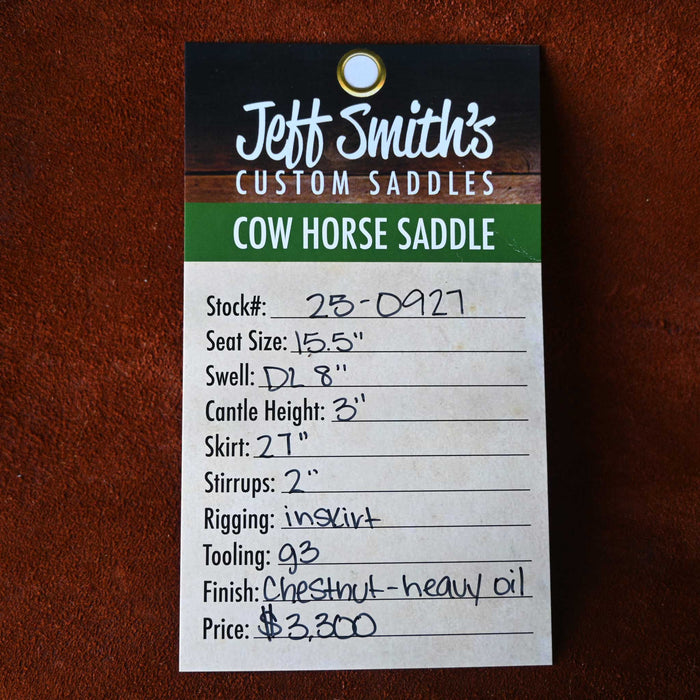 Jeff Smith's
CUSTOM SADDLES
COW HORSE SADDLE
Stock#: 25-0927
Seat Size: 15.5"
Swell: DL 8"
Cantle Height: 3"
Skirt: 27"
Stirrups: 2"
Rigging: inskirt
Tooling: g3
Finish: Chestnut-heavy oil
Price: $3,300